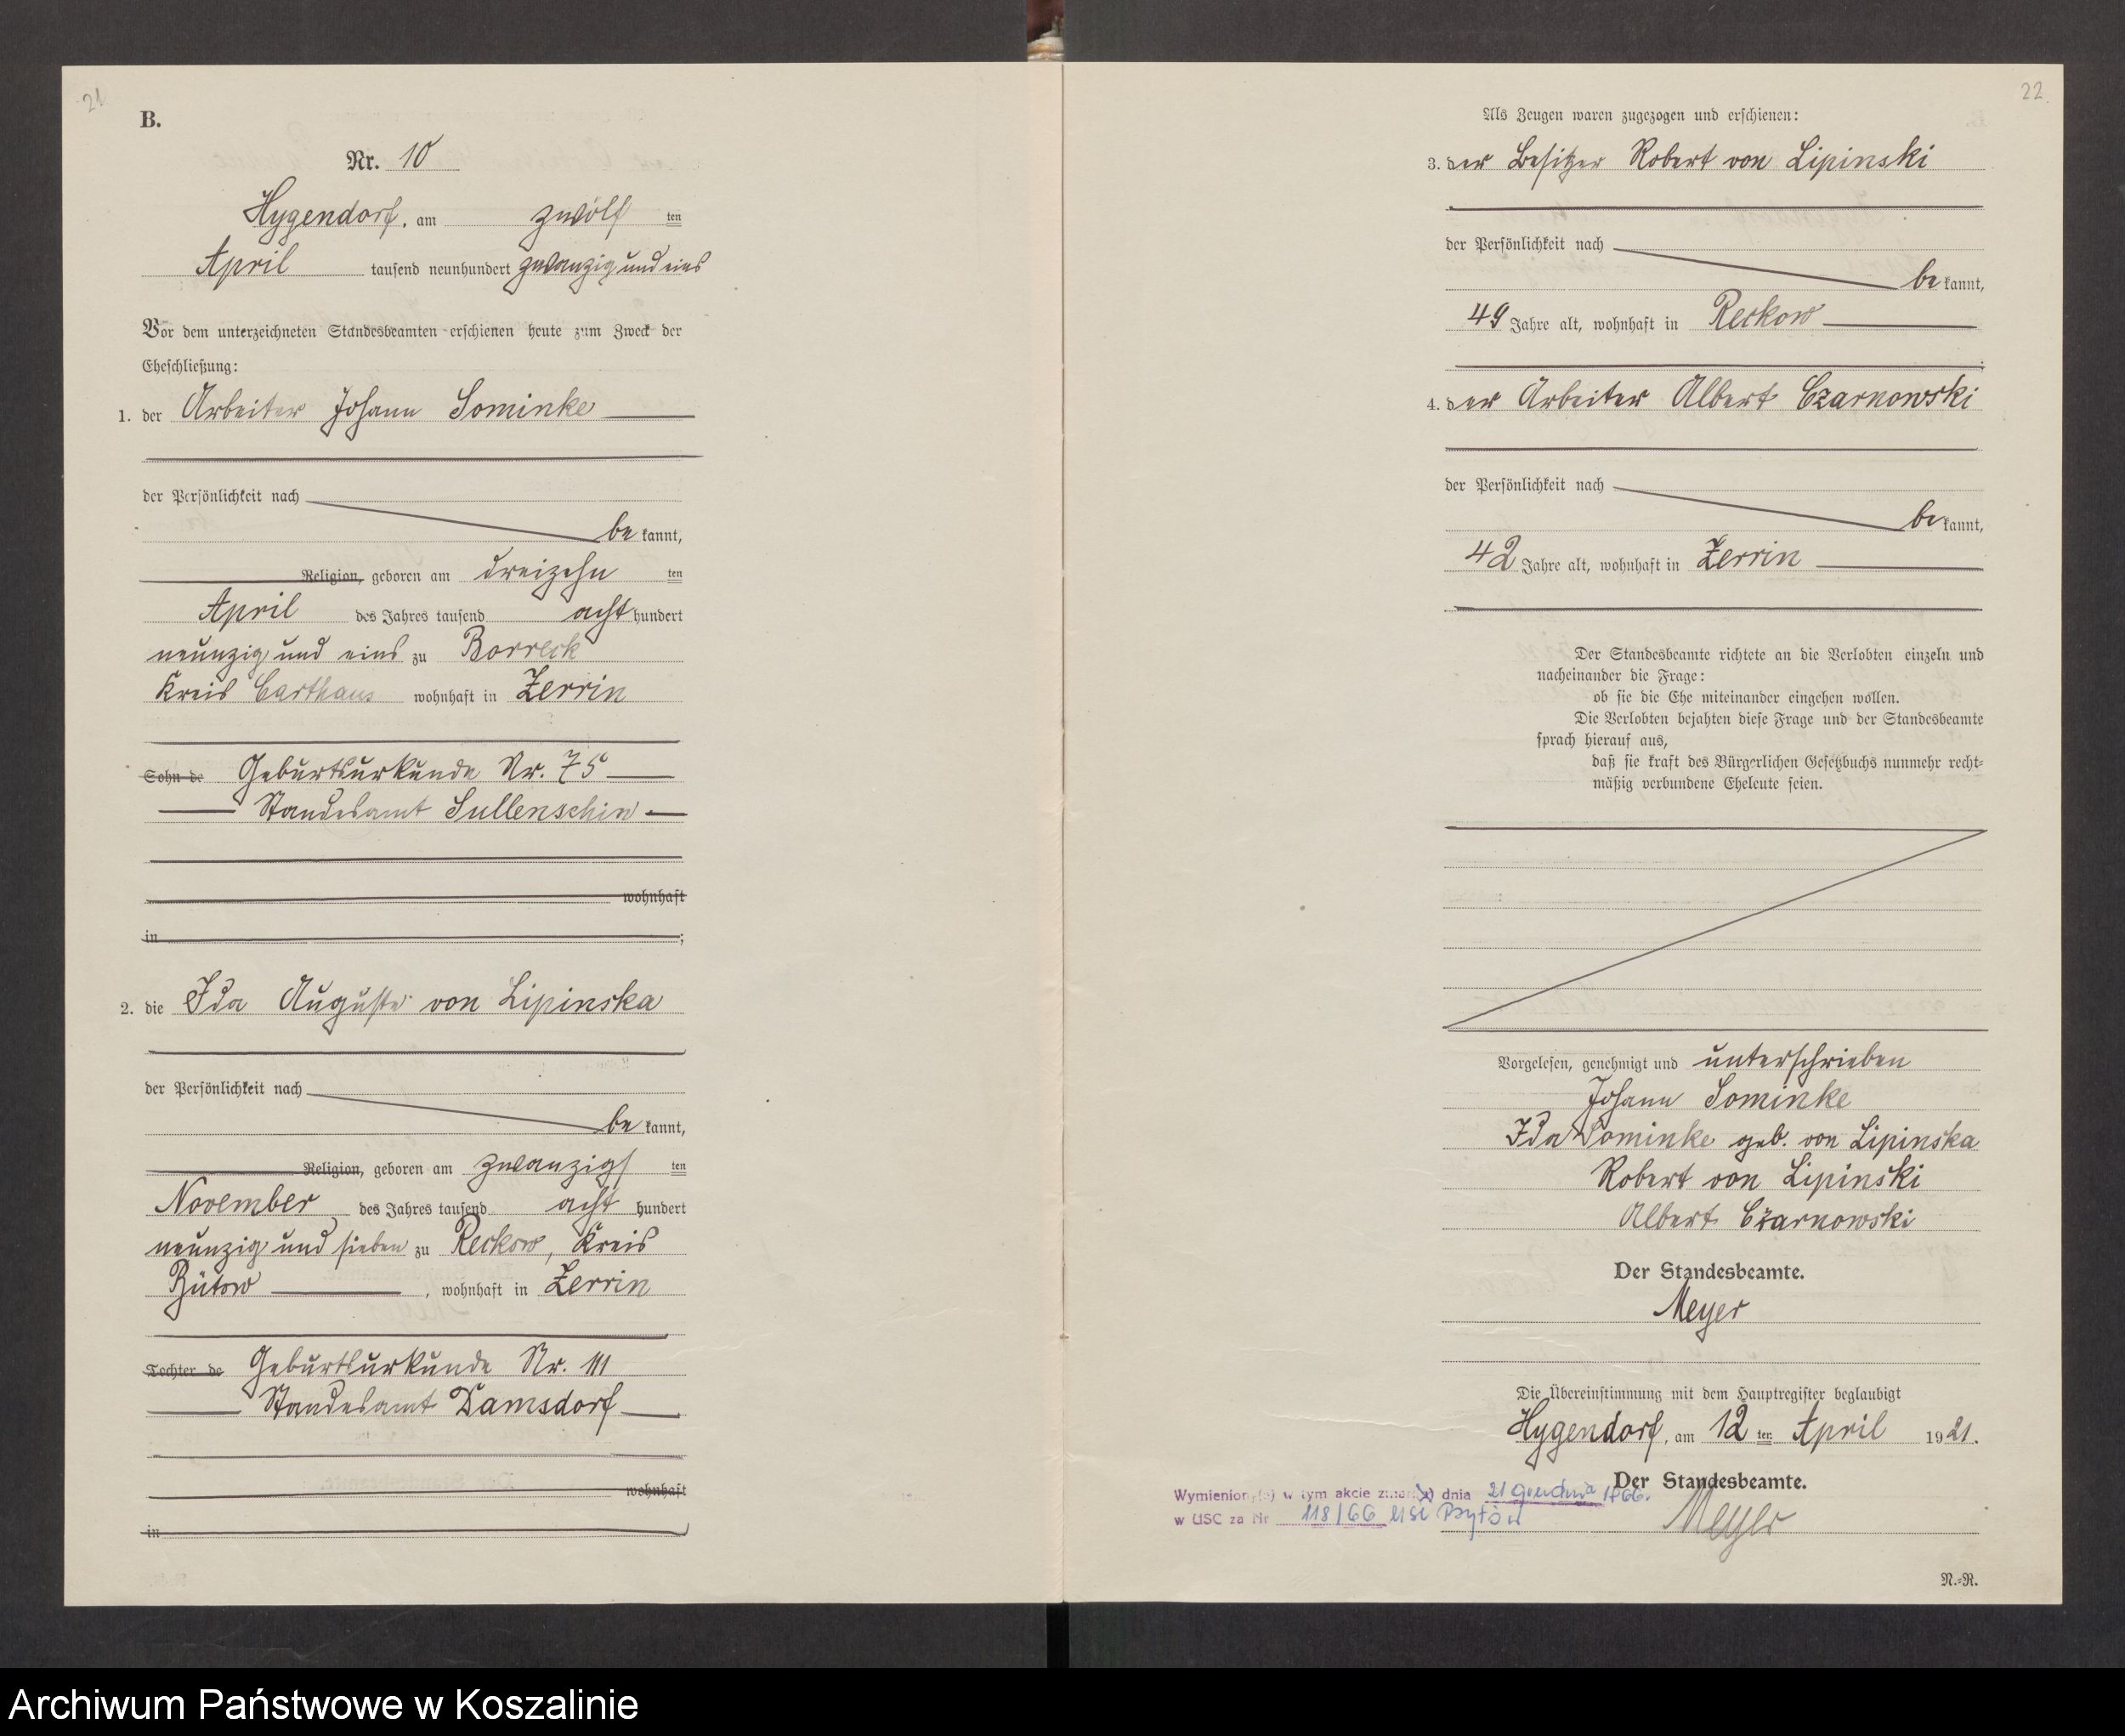 21
B.
Nr. 10
Hygendorf, am zwölf ten
April tausend neunhundert zwanzig und eins
Vor dem unterzeichneten Standesbeamten erschienen heute zum Zweck der
Eheschließung:
1. der Arbeiter Johann Sominke
der Persönlichkeit nach
be kannt,
Religion, geboren am dreizehn ten
April des Jahres tausend acht hundert
neunzig und eins zu Borreck
Kreis Carthaus wohnhaft in Zerrin
Sohn de Geburtsurkunde Nr. 75
Standesamt Sullenschin
wohnhaft
in ;
2. die Ida Auguste von Lipinska
der Persönlichkeit nach
be kannt,
Religion, geboren am zwanzigs ten
November des Jahres tausend acht hundert
neunzig und sieben zu Reckow, Kreis
Bütow , wohnhaft in Zerrin
Tochter de Geburtsurkunde Nr. 111
Standesamt Damsdorf
wohnhaft
in
22
Als Zeugen waren zugezogen und erschienen:
3. der Besitzer Robert von Lipinski
der Persönlichkeit nach
be kannt,
49 Jahre alt, wohnhaft in Reckow
;
4. der Arbeiter Albert Czarnowski
der Persönlichkeit nach
be kannt,
42 Jahre alt, wohnhaft in Zerrin
Der Standesbeamte richtete an die Verlobten einzeln und
nacheinander die Frage:
ob sie die Ehe miteinander eingehen wollen.
Die Verlobten bejahten diese Frage und der Standesbeamte
sprach hierauf aus,
daß sie kraft des Bürgerlichen Gesetzbuchs nunmehr recht-
mäßig verbundene Eheleute seien.
Vorgelesen, genehmigt und unterschrieben
Johann Sominke
Ida Sominke geb. von Lipinska
Robert von Lipinski
Albert Czarnowski
Der Standesbeamte.
Meyer
Die Übereinstimmung mit dem Hauptregister beglaubigt
Hygendorf, am 12 ten April 1921.
Der Standesbeamte.
Meyer
Wymieniony(a) w tym akcie zmarł(a) dnia 21 grudnia 1966.
w USC za Nr 118/66 USC Bytów
N.-R.
Archiwum Państwowe w Koszalinie